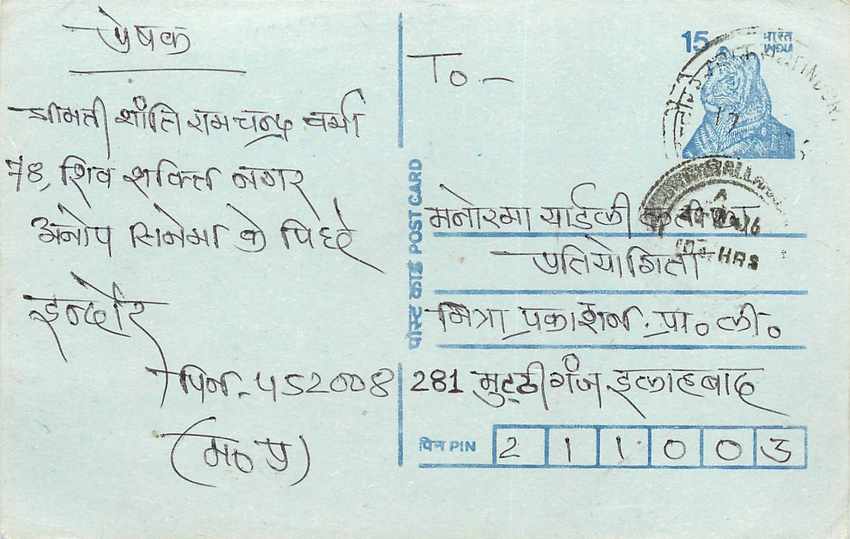 प्रेषक
श्रीमती शाँति रामचन्द्र वर्मा
78, शिव शक्ति नगर
अनोप सिनेमा के पिछे
इन्दौर
पिन. 452008
(म० प्र)
15 भारत
INDIA
To -
पोस्ट कार्ड POST CARD
मनोरमा यार्डली
प्रतियोगिता
मित्रा प्रकाशन. प्रा० ली०
281 मुट्ठीगँज इलाहबाद
पिन PIN 2 1 1 0 0 3
17
A
HRS